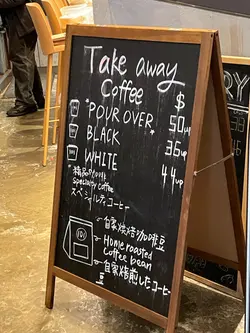 Take away
Coffee
$
"POUR OVER" 50up
BLACK 36up
WHITE 44up
精品咖啡
specialty coffee
スペシャルティコーヒー
自家焙焙咖啡豆
Home roasted
Coffee bean
自家焙煎したコーヒー
RY